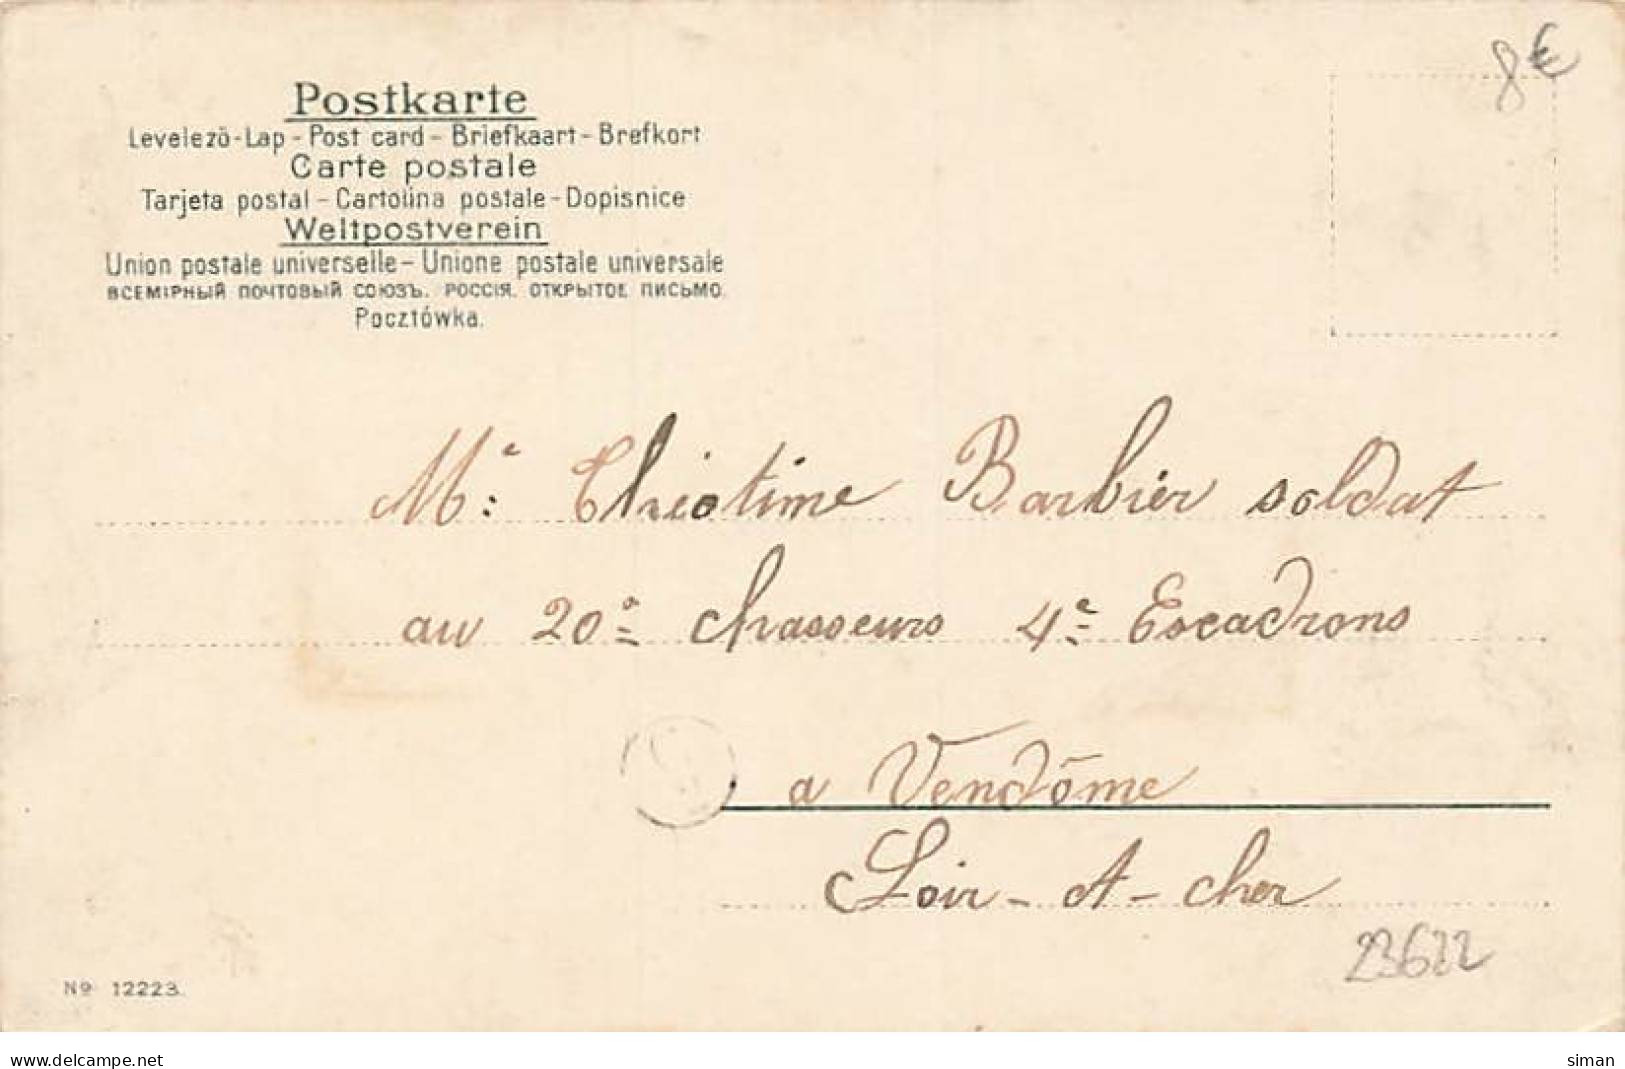 8€
Postkarte
Levelező-Lap - Post card - Briefkaart - Brefkort
Carte postale
Tarjeta postal - Cartolina postale - Dopisnice
Weltpostverein
Union postale universelle - Unione postale universale
ВСЕМІРНЫЙ ПОЧТОВЫЙ СОЮЗЪ. РОССІЯ. ОТКРЫТОЕ ПИСЬМО.
Pocztówka.
Mr: Barbier soldat
au 20e chasseurs 4e Escadrons
a Vendôme
Loir-et-cher
23622
No 12223.
www.delcampe.net
siman